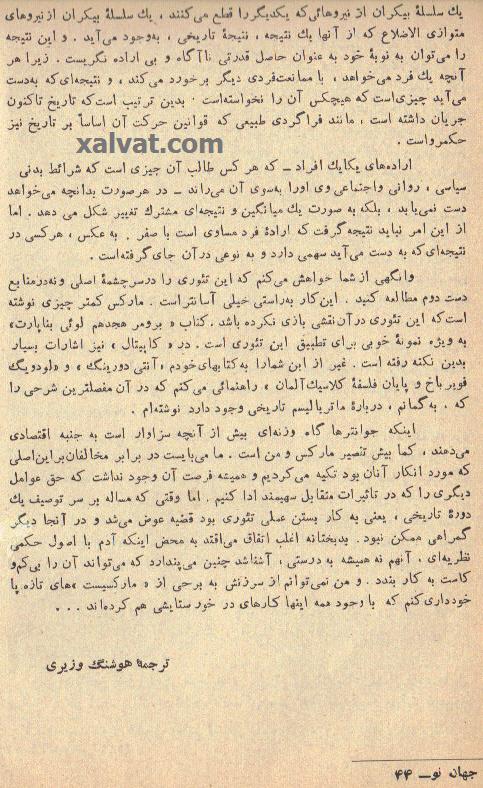 یك سلسلهٔ بیکران از نیروهائی‌که یکدیگررا قطع می‌کنند ، یك سلسلهٔ بیکران ازنیروهای
متوازی الاضلاع که از آنها یك نتیجه ، نتیجهٔ تاریخی ، به‌وجود می‌آید . و این نتیجه
را می‌توان به نوبهٔ خود به عنوان حاصل قدرتی ناآگاه و بی اراده نگریست . زیرا هر
آنچه یك فرد می‌خواهد ، با ممانعت‌فردی دیگر برخورد می‌کند ، و نتیجه‌ای که به‌دست
می‌آید چیزی‌است که هیچکس آن را نخواسته‌است . بدین ترتیب است‌که تاریخ تاکنون
جریان داشته است ، مانند فراگردی طبیعی که قوانین حرکت آن اساساً بر تاریخ نیز
حکمرواست .
xalvat.com
اراده‌های یکایك افراد ــ که هر کس طالب آن چیزی است که شرائط بدنی
سیاسی ، روانی واجتماعی وی اورا به‌سوی آن می‌راند ــ در هرصورت بدانچه می‌خواهد
دست نمی‌یابد ، بلکه به صورت یك میانگین و نتیجه‌ای مشترك تغییر شکل می دهد . اما
از این امر نباید نتیجه‌گرفت که ارادهٔ فرد مساوی است با صفر . به عکس ، هرکسی در
نتیجه‌ای‌که به دست می‌آید سهمی دارد و به نوعی درآن جای گرفته‌است .
وانگهی ازشما خواهش می‌کنم که این تئوری را درسرچشمهٔ اصلی ونه‌درمنابع
دست دوم مطالعه کنید . این‌کار به‌راستی خیلی آسانتراست . مارکس کمتر چیزی نوشته
است‌که این تئوری درآن‌نقشی بازی نکرده باشد . کتاب « برومر هجدهم لوئی بناپارت»
به ویژه نمونهٔ خوبی برای تطبیق این تئوری است . در« کاپیتال » نیز اشارات بسیار
بدین نکته رفته است . غیر از این شمارا به‌کتابهای‌خودم «آنتی دورینگ» و «لودویگ
فویر باخ و پایان فلسفهٔ کلاسیك‌آلمان » راهنمائی می‌کنم که در آن مفصلترین شرحی را
که ، به‌گمانم ، دربارهٔ ماتریالیسم تاریخی وجود دارد نوشته‌ام .
اینکه جوانترها گاه وزنه‌ای بیش از آنچه سزاوار است به جنبه اقتصادی
می‌دهند ، کما بیش تقصیر مارکس و من است . ما می‌بایست در برابر مخالفان‌براین‌اصلی
که مورد انکار آنان بود تکیه می‌کردیم و همیشه فرصت آن وجود نداشت که حق عوامل
دیگری را که در تاثیرات متقابل سهیمند ادا کنیم . اما وقتی که مساله بر سر توصیف یك
دورهٔ تاریخی ، یعنی به کار بستن عملی تئوری بود قضیه عوض می‌شد و در آنجا دیگر
گمراهی ممکن نبود . بدبختانه اغلب اتفاق می‌افتد به محض اینکه آدم با اصول حکمی
نظریه‌ای ، آنهم نه همیشه به درستی ، آشناشد چنین می‌پندارد که می‌تواند آن را بی‌کم‌و
کاست به کار بندد . و من نمی‌توانم از سرزنش به برخی از « مارکسیست »های تازه پا
خودداری‌کنم که با وجود همه اینها کارهای در خور ستایشی هم کرده‌اند . . .
ترجمهٔ هوشنگ وزیری
جهان نو ــ ۴۴